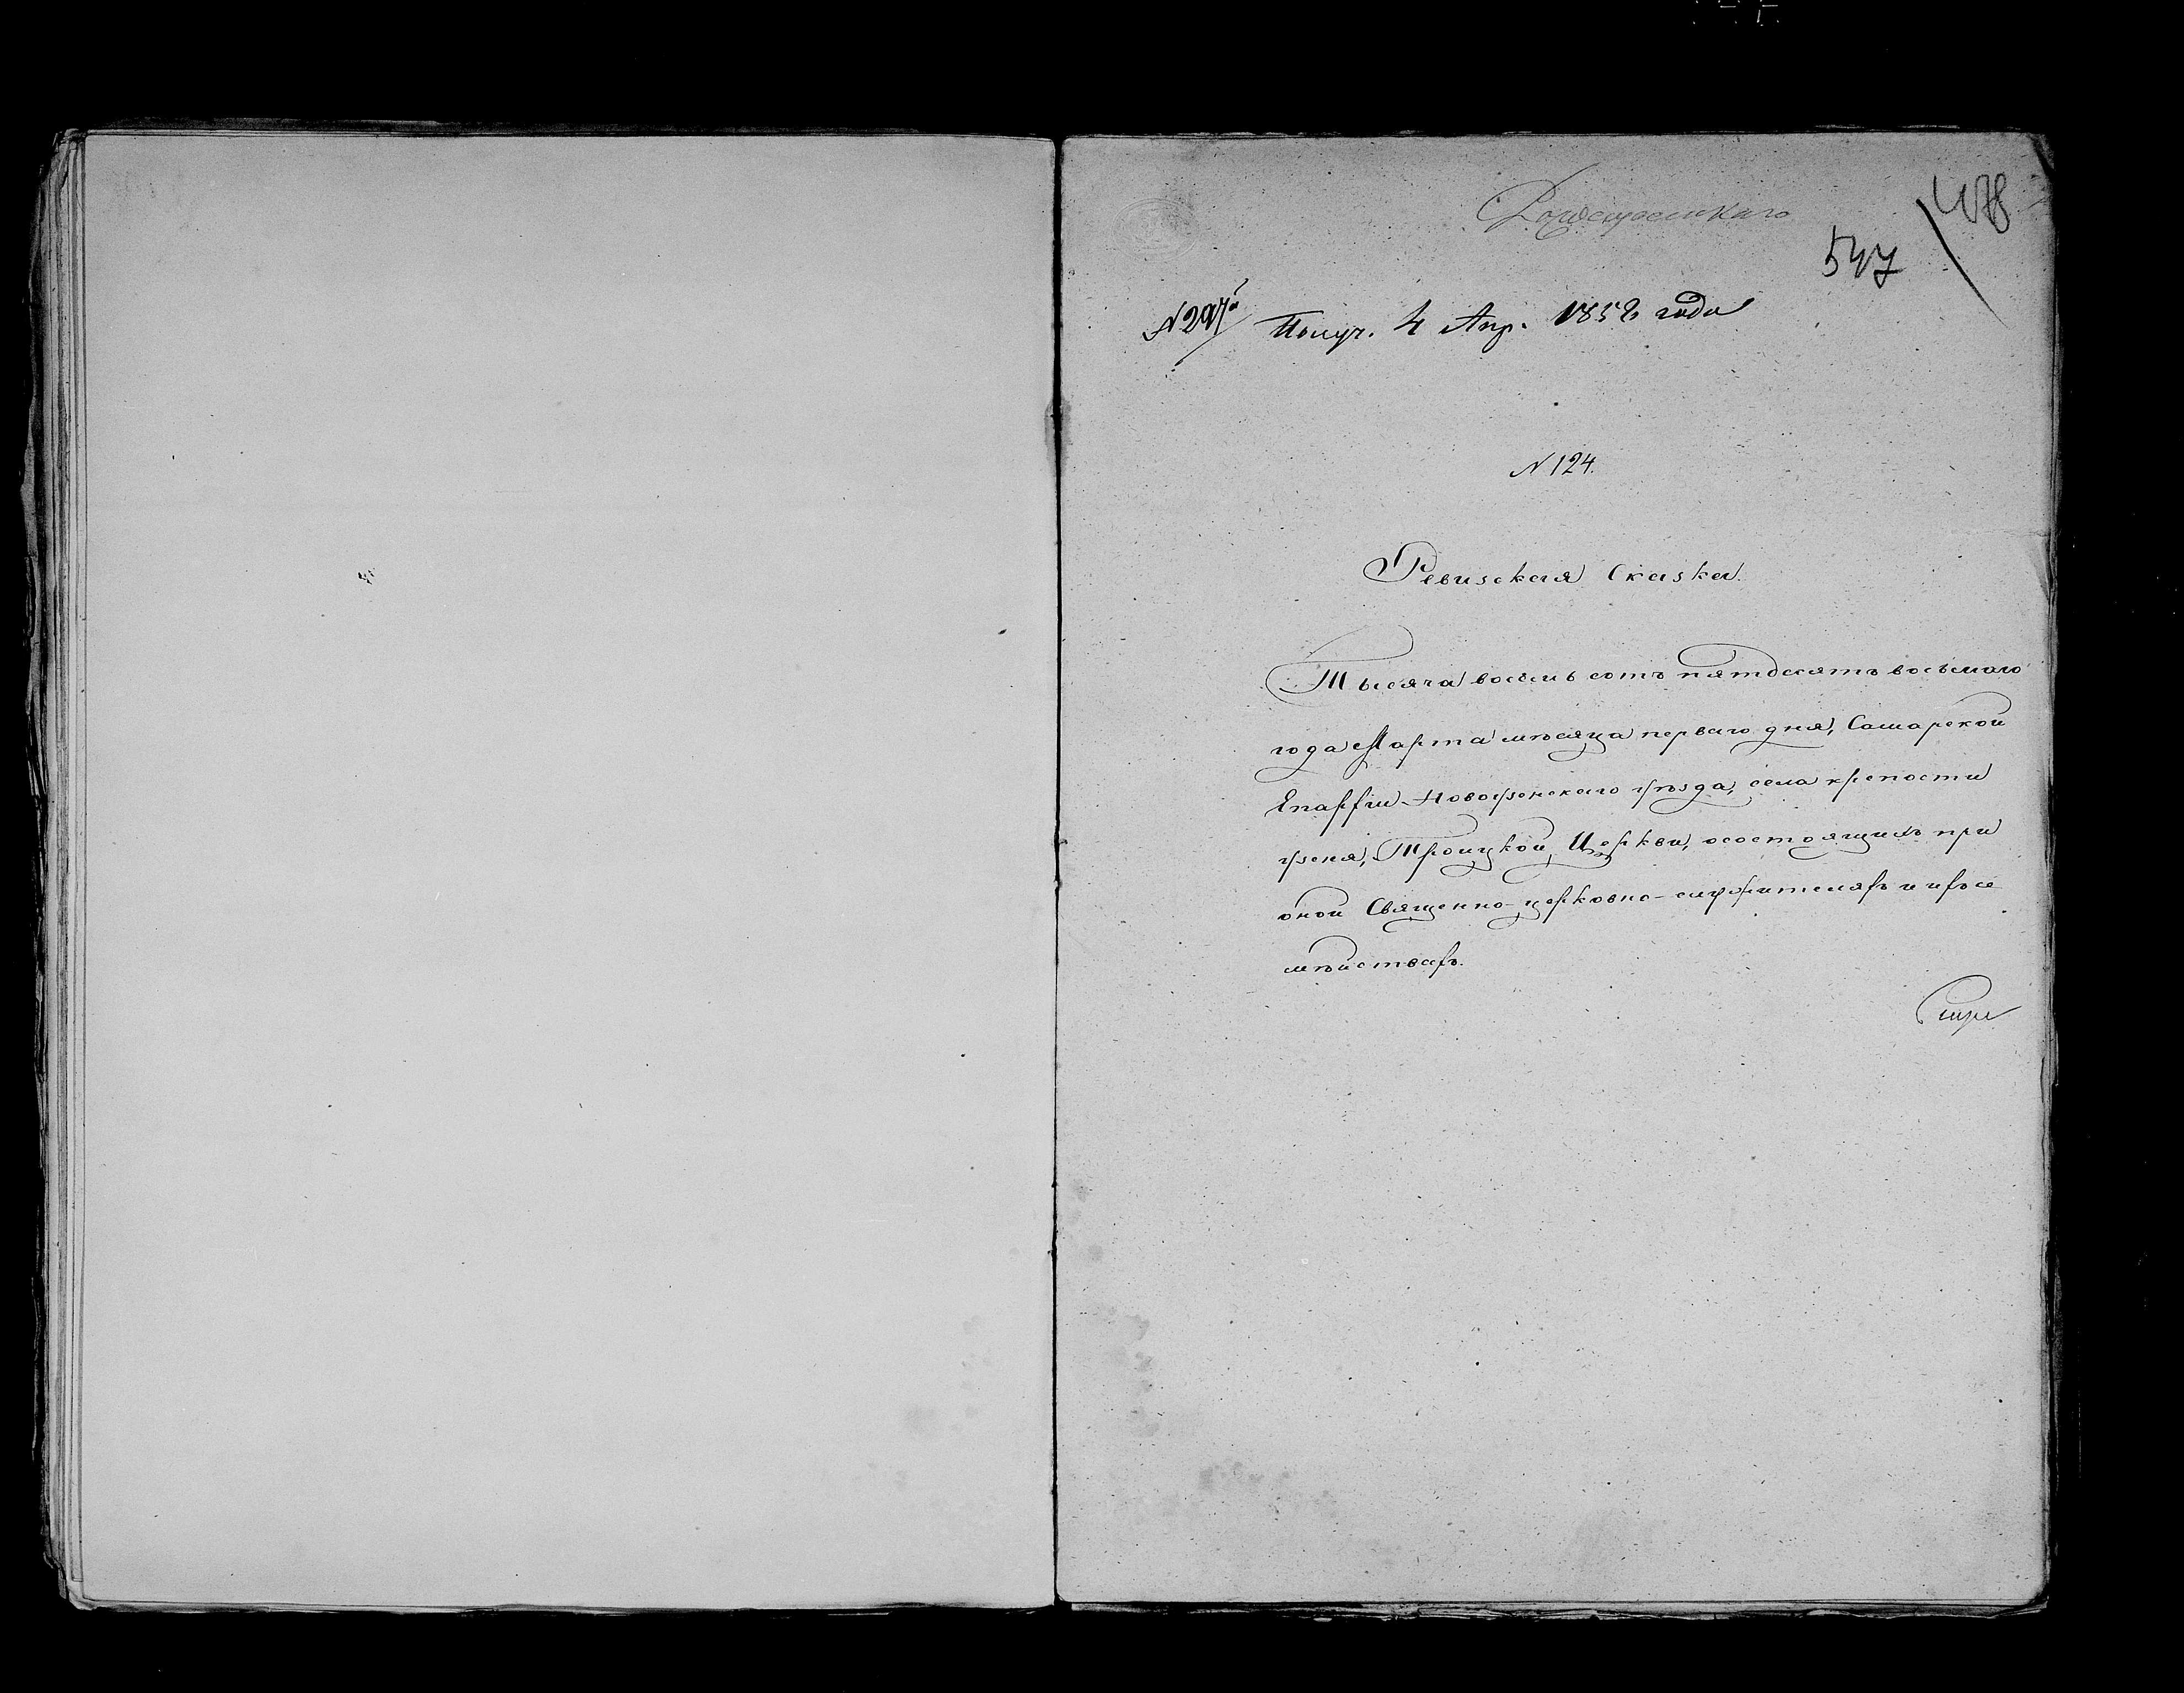 Рождественскаго
478
547
N 297
Получ. 4 Апр. 1858 года
N 124.
Ревизская Сказка.
Тысяча восемь сотъ пятдесятъ восьмаго
года Марта мѣсяца перваго дня, Самарской
Епархіи Новоузенскаго уѣзда, села крепости
узеня, Троицкой, Церкви, осостоящихъ при
оной Священно-церковно-служителяхъ и ихъ се
мѣйствахъ.